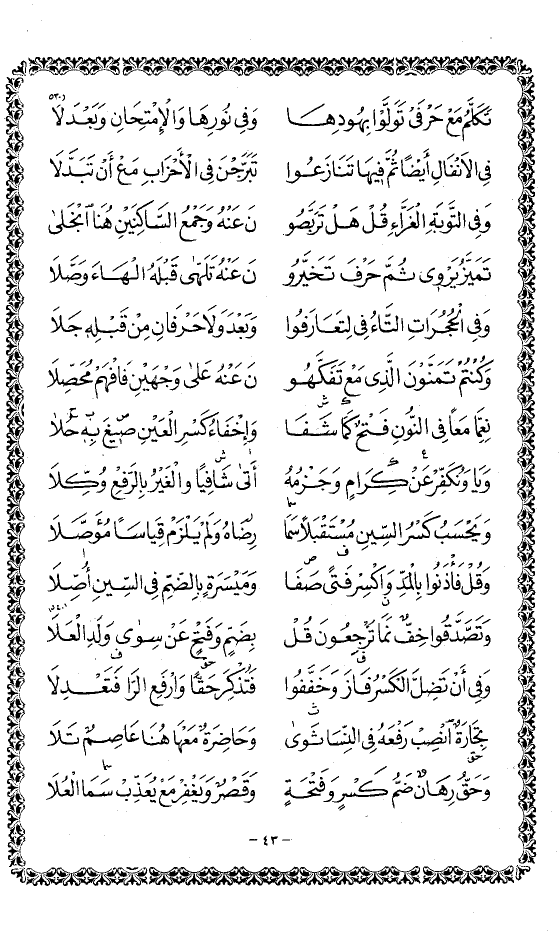 ٥٣٠
تَكَلَّمُ مَعْ حَرْفَيْ تَوَلَّوْا بِهُودِهَا وَفِي نُورِهَا وَالْاِمْتِحَانِ وَبَعْدَ لَا
فِي الْأَنْفَالِ أَيْضًا ثُمَّ فِيهَا تَنَازَعُوا تَبَرَّجْنَ فِي الْأَحْزَابِ مَعْ أَنْ تَبَدَّلَا
وَفِي التَّوْبَةِ الْغَرَّاءِ قُلْ هَلْ تَرَبَّصُو نَ عَنْهُ وَجَمْعُ السَّاكِنَيْنِ هُنَا انْجَلَى
تَمَيَّزُ يَرْوِي ثُمَّ حَرْفَ تَخَيَّرُو نَ عَنْهُ تَلَهَّى قَبْلَهُ الْهَاءَ وَصَّلَا
وَفِي الْحُجُرَاتِ التَّاءُ فِي لِتَعَارَفُوا وَبَعْدَ وَلَا حَرْفَانِ مِنْ قَبْلِهِ جَلَا
وَكُنْتُمْ تَمَنَّوْنَ الَّذِي مَعْ تَفَكَّهُو نَ عَنْهُ عَلَى وَجْهَيْنِ فَافْهَمْ مُحَصِّلَا
نِعِمَّا مَعًا فِي النُّونِ فَتْحٌ كَمَا شَفَا وَإِخْفَاءُ كَسْرِ الْعَيْنِ صِيغَ بِهِ حُلَا
وَيَا وَنُكَفِّرْ عَنْ كِرَامٍ وَجَزْمُهُ أَتَى شَافِيًا وَالْغَيْرُ بِالرَّفْعِ وُكِّلَا
وَيَحْسَبُ كَسْرُ السِّينِ مُسْتَقْبَلًا سَمَا رِضَاهُ وَلَمْ يَلْزَمْ قِيَاسًا مُؤَصَّلَا
وَقُلْ فَأْذَنُوا بِالْمَدِّ وَاكْسِرْ فَتًى صَفَا وَمَيْسَرَةٍ بِالضَّمِّ فِي السِّينِ أُصِّلَا
وَتَصَّدَّقُوا خِفٌّ نَمَا تَرْجِعُونَ قُلْ بِضَمٍّ وَفَتْحٍ عَنْ سِوَى وَلَدِ الْعَلَا
وَفِي أَنْ تَضِلَّ الْكَسْرُ فَازَ وَخَفَّفُوا فَتُذْكِرَ حَقًّا وَارْفَعِ الرَّا فَتَعْدِلَا
تِجَارَةٌ انْصِبْ رَفْعَهُ فِي النِّسَا ثَوَى وَحَاضِرَةٌ مَعْهَا هُنَا عَاصِمٌ تَلَا
وَحَقُّ رِهَانٍ ضَمُّ كَسْرٍ وَفَتْحَةٍ وَقَصْرٌ وَيَغْفِرْ مَعْ يُعَذِّبْ سَمَا الْعُلَا
- ٤٣ -